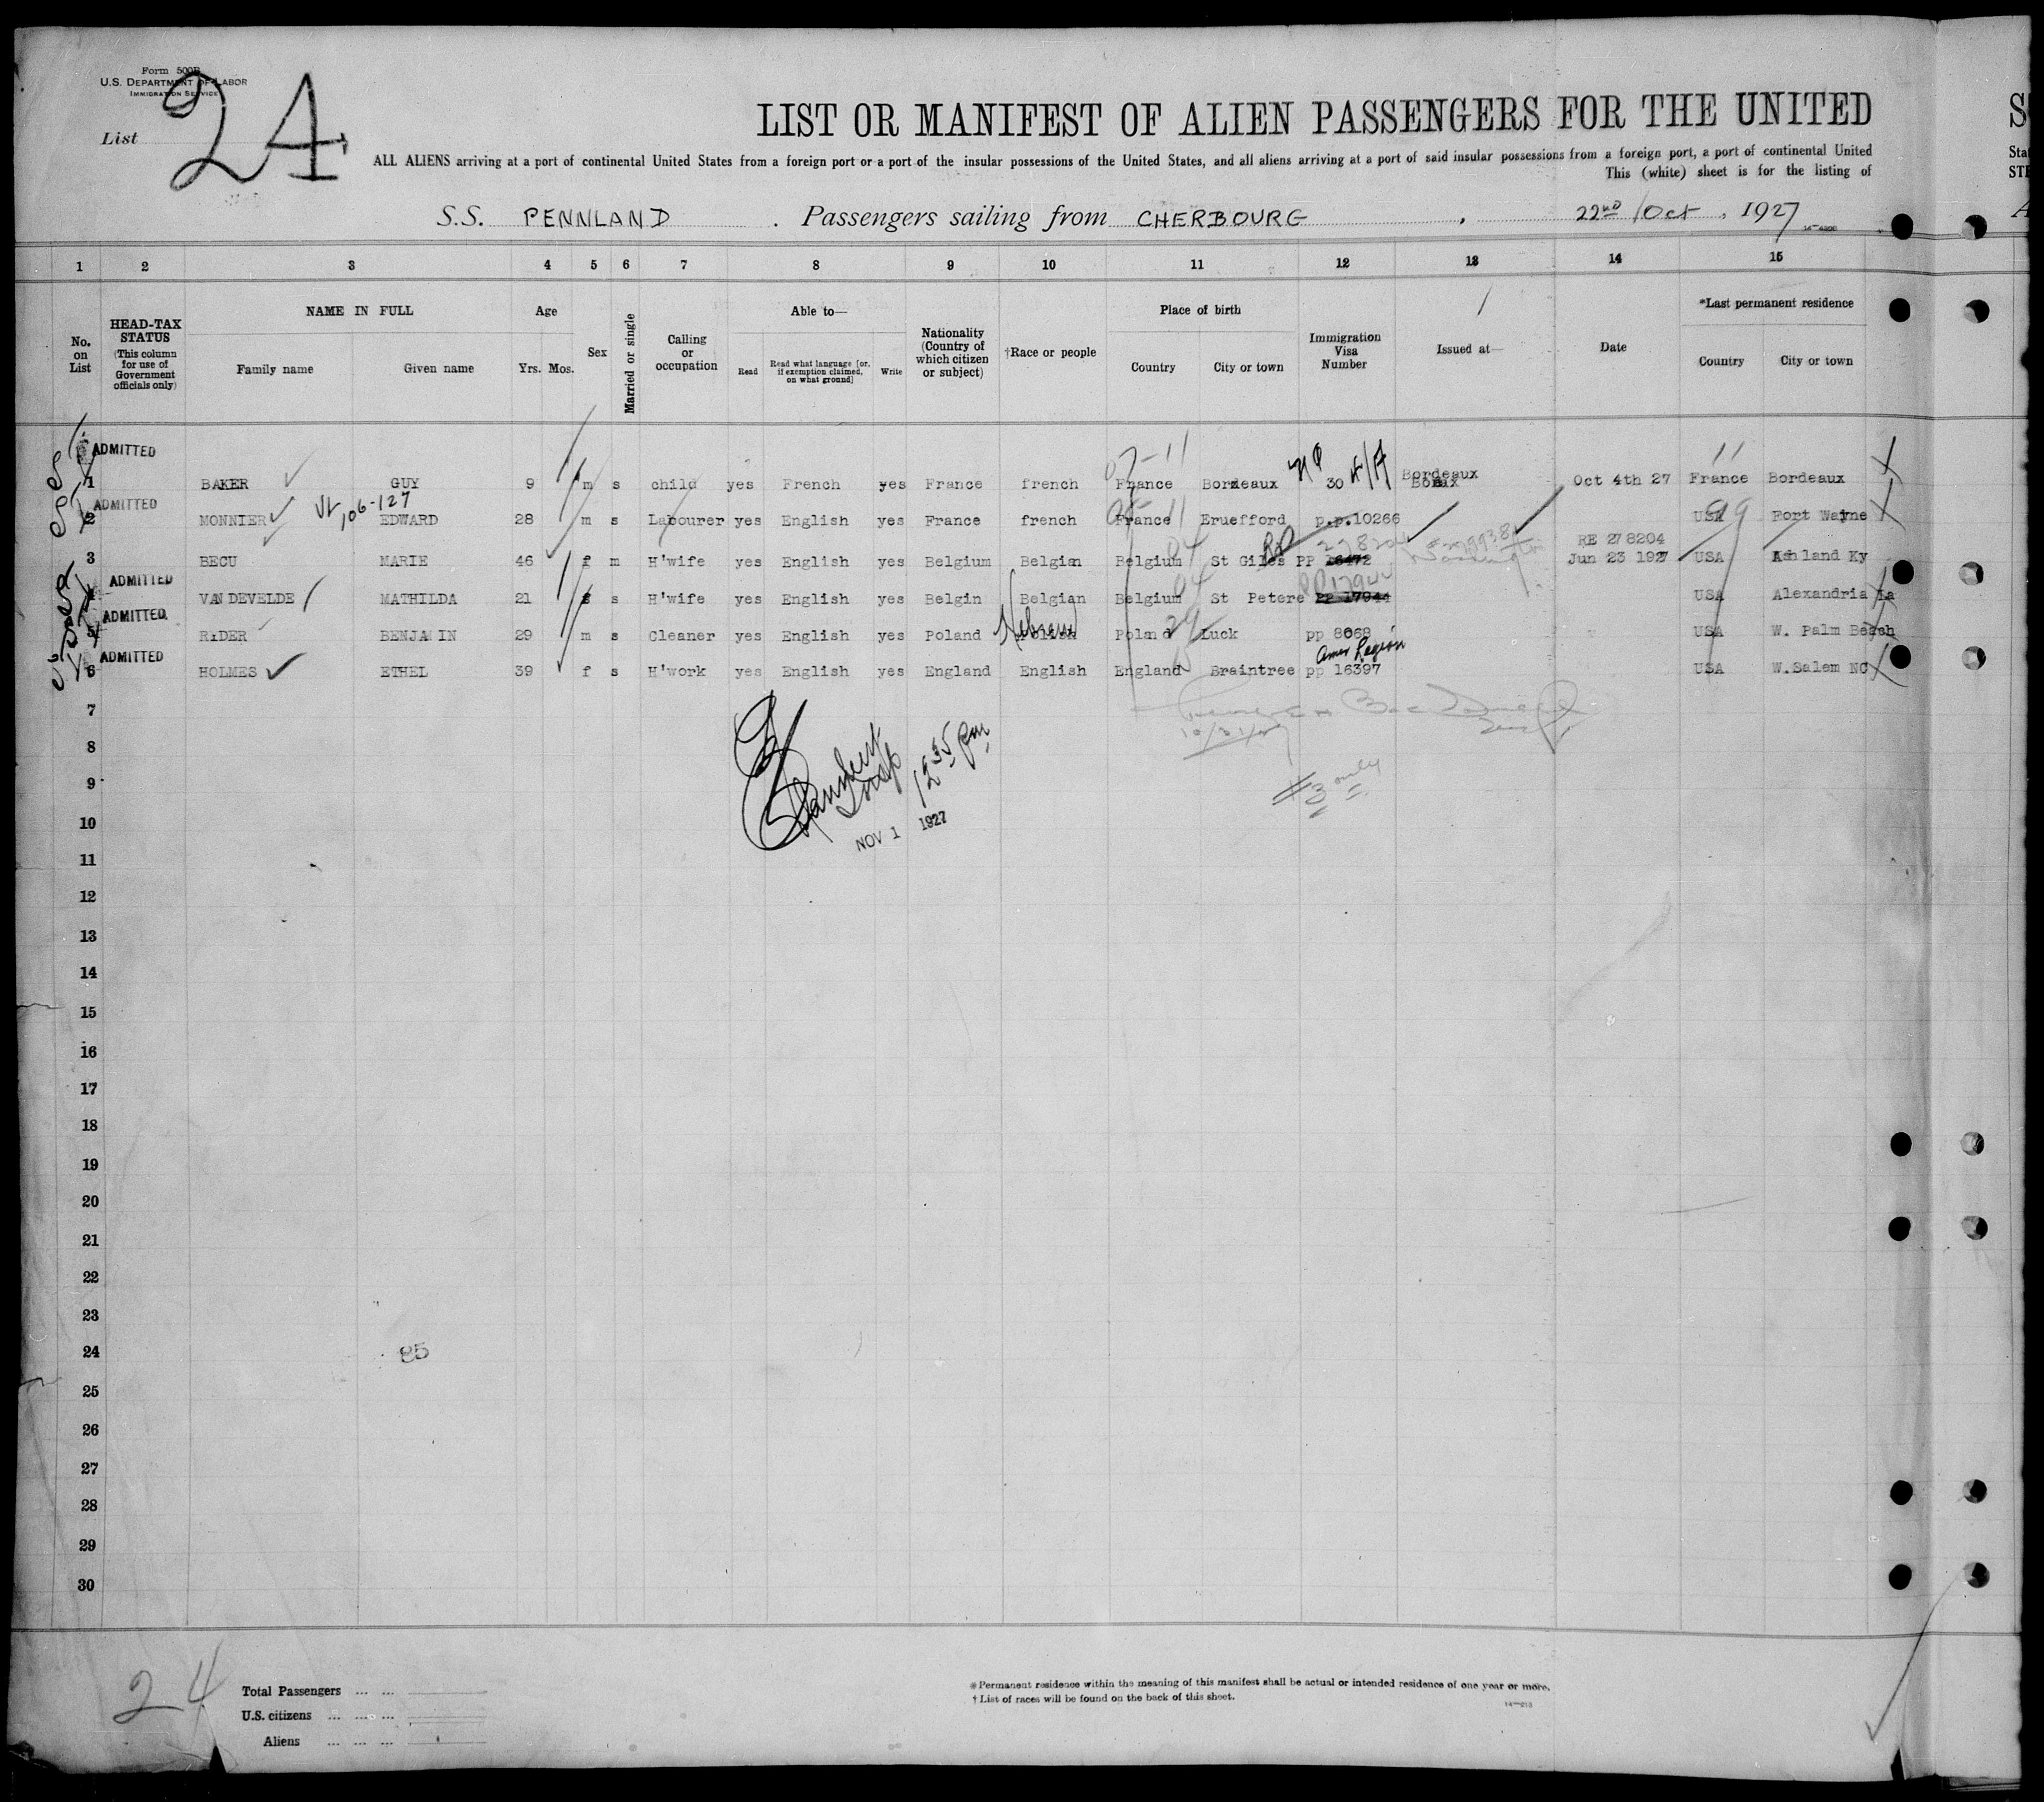 Form 500B
U.S. DEPARTMENT OF LABOR
IMMIGRATION SERVICE
List 24
LIST OR MANIFEST OF ALIEN PASSENGERS FOR THE UNITED
ALL ALIENS arriving at a port of continental United States from a foreign port or a port of the insular possessions of the United States, and all aliens arriving at a port of said insular possessions from a foreign port, a port of continental United
This (white) sheet is for the listing of
S.S. PENNLAND . Passengers sailing from CHERBOURG , 22ND Oct , 1927
1 2 3 4 5 6 7 8 9 10 11 12 13 14 15
No. on List
HEAD-TAX STATUS (This column for use of Government officials only)
NAME IN FULL
Family name Given name
Age
Yrs. Mos.
Sex
Married or single
Calling or occupation
Able to—
Read Read what language [or, if exemption claimed, on what ground] Write
Nationality (Country of which citizen or subject)
†Race or people
Place of birth
Country City or town
Immigration Visa Number
Issued at—
Date
*Last permanent residence
Country City or town
ADMITTED
1 BAKER GUY 9 m s child yes French yes France french France Bordeaux 30 Bordeaux Oct 4th 27 France Bordeaux
07-11
11
ADMITTED
106-127
2 MONNIER EDWARD 28 m s Labourer yes English yes France french France Eruefford p.p.10266 USA Fort Wayne
99
RE 278204
3 BECU MARIE 46 f m H'wife yes English yes Belgium Belgian Belgium St Giles PP 16472 Jun 23 1927 USA Ashland Ky
ADMITTED
PP 17944
4 VAN DEVELDE MATHILDA 21 f s H'wife yes English yes Belgin Belgian Belgium St Petere PP 17944 USA Alexandria Ia
ADMITTED
5 RIDER BENJAMIN 29 m s Cleaner yes English yes Poland Hebrew Poland Luck pp 8068 USA W. Palm Beach
ADMITTED
Amer Legion
6 HOLMES ETHEL 39 f s H'work yes English yes England English England Braintree pp 16397 USA W.Salem NC
7
8
9
10
11
12
13
14
15
16
17
18
19
20
21
22
23
24
25
26
27
28
29
30
12 35 pm
NOV 1 1927
#3 only
85
24
Total Passengers ... ...
U.S. citizens ... ... ...
Aliens ... ... ...
* Permanent residence within the meaning of this manifest shall be actual or intended residence of one year or more.
† List of races will be found on the back of this sheet.